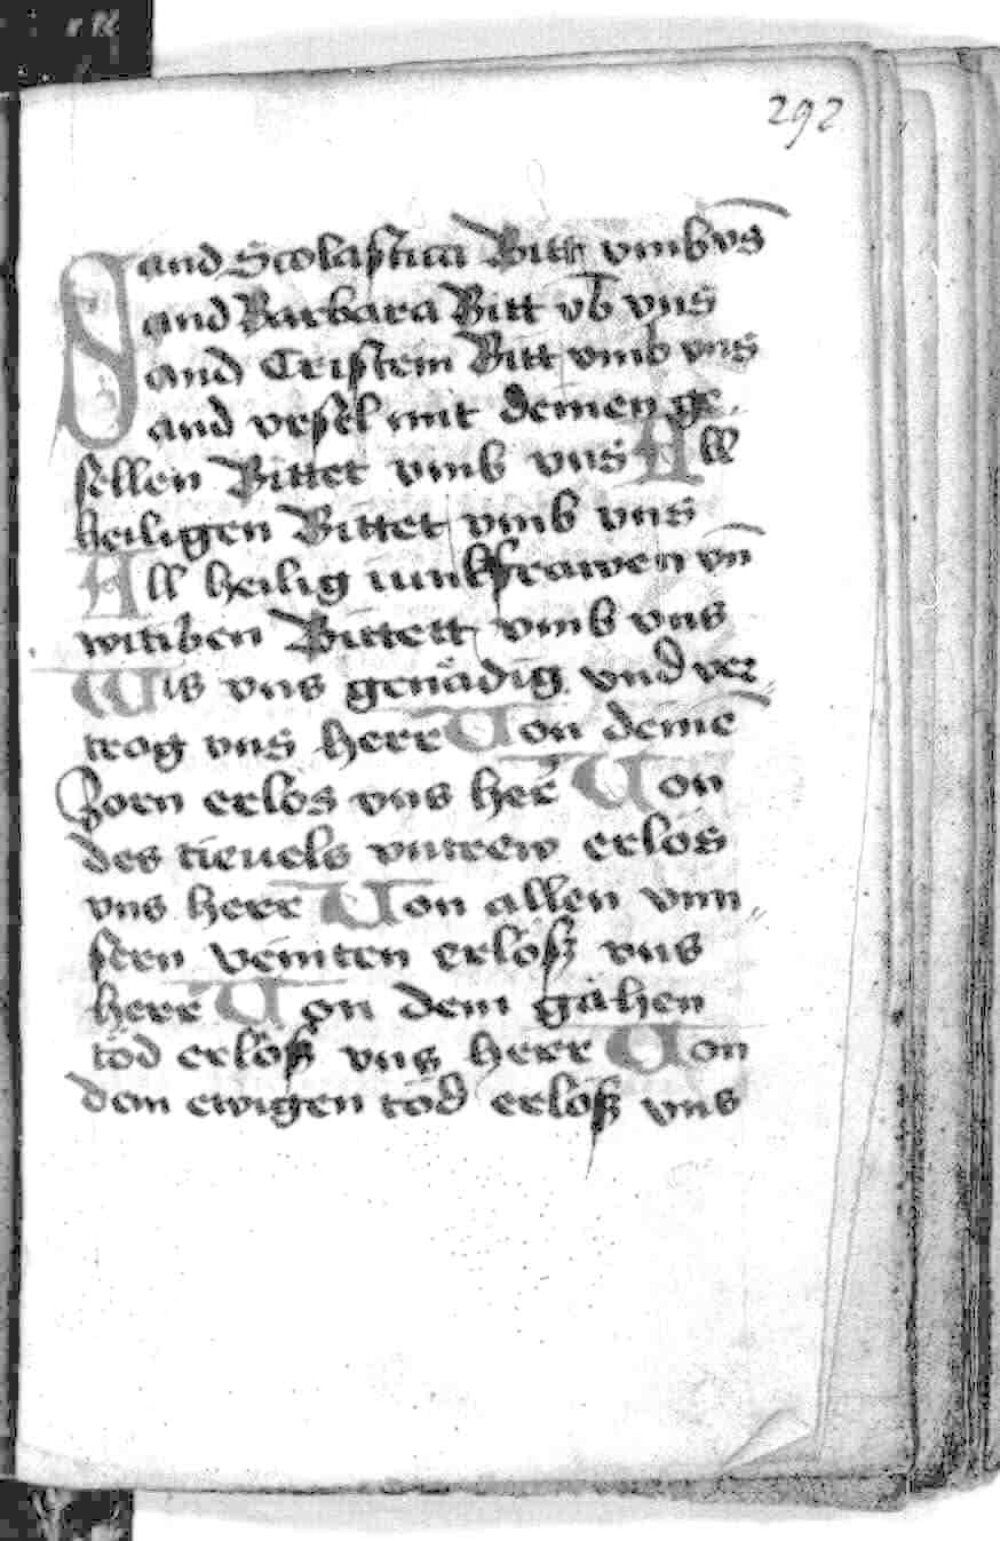 292
Sand Scolastica Bitt vmb vs̄
and Barbara Bitt vb̄ vns
and Cristein Bitt vmb vns
and vrsel mit deinen ge
sellen Bittet vmb vns All
heiligen Bittet vmb vns
All heilig iunkfrawen vn̄
witiben Bittett vmb vns
Wis vns genådig vnd ver
trag vns herr Von deinē
zorn erlös vns her̄ Von
des tieuels vntrew erlös
vns herr Von allen vnn
sern veinten erlösz vns
herr Von dem gähen
töd erlösz vns herr Von
dem ewigen töd erlösz vns